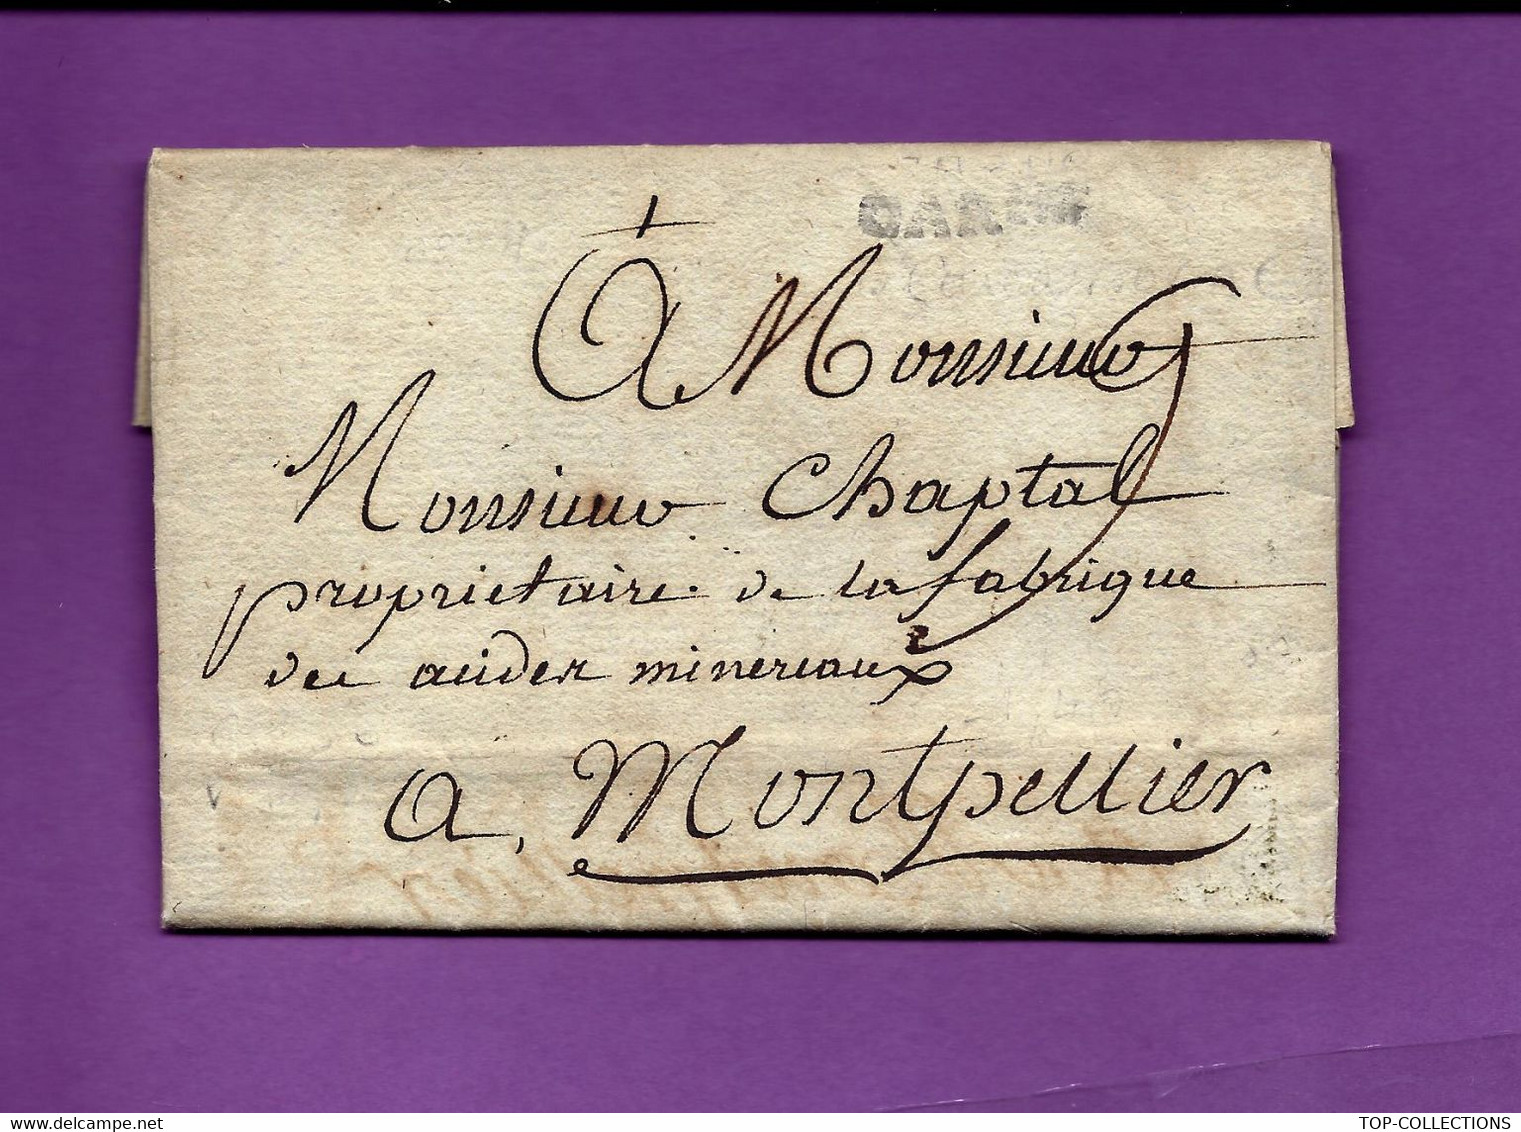 MILAD
À Monsieur
Monsieur Chaptal
proprietaire de la fabrique
des acides minereaux
a, Montpellier
www.delcampe.net
TOP-COLLECTIONS